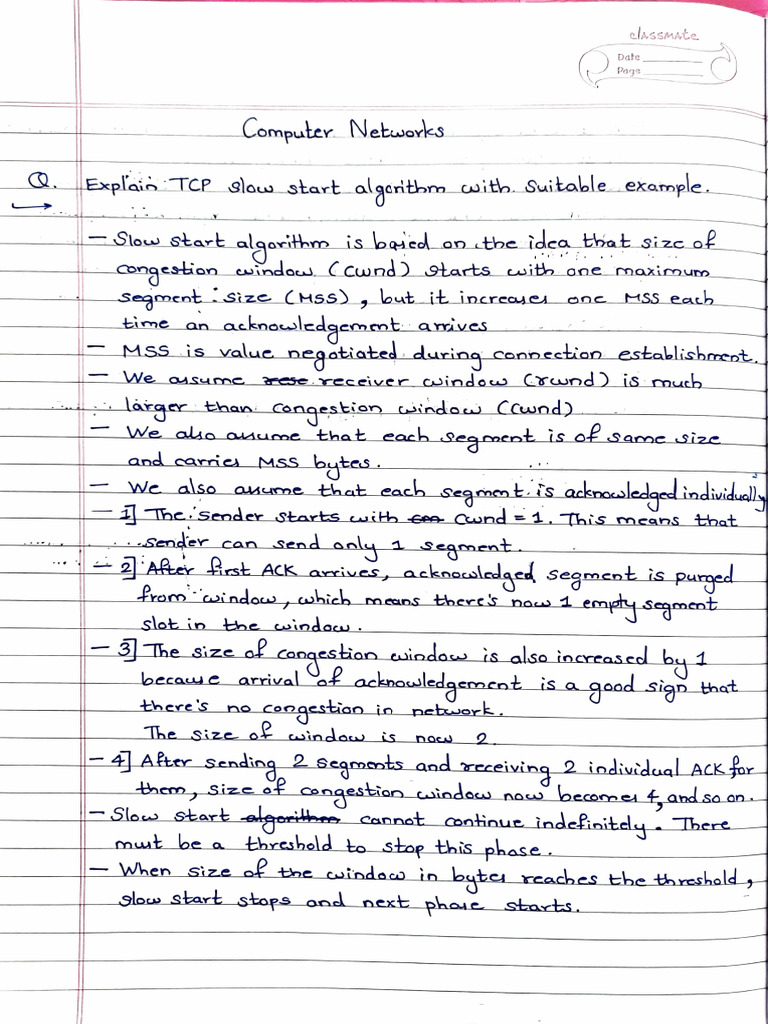 classmate
Date
Page
Computer Networks
Q. Explain TCP slow start algorithm with suitable example.
→
- Slow start algorithm is based on the idea that size of
congestion window (cwnd) starts with one maximum
segment size (MSS), but it increases one MSS each
time an acknowledgement arrives
- MSS is value negotiated during connection establishment.
- We assume rese receiver window (rwnd) is much
larger than congestion window (cwnd)
- We also assume that each segment is of same size
and carries MSS bytes.
- We also assume that each segment is acknowledged individually
- 1] The sender starts with con cwnd = 1. This means that
sender can send only 1 segment.
- 2] After first ACK arrives, acknowledged segment is purged
from window, which means there's now 1 empty segment
slot in the window.
- 3] The size of congestion window is also increased by 1
because arrival of acknowledgement is a good sign that
there's no congestion in network.
The size of window is now 2.
- 4] After sending 2 segments and receiving 2 individual ACK for
them, size of congestion window now becomes 4, and so on.
- Slow start algorithm cannot continue indefinitely. There
must be a threshold to stop this phase.
- When size of the window in bytes reaches the threshold,
slow start stops and next phase starts.